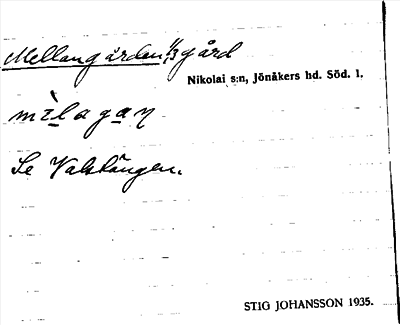 Mellangården 1/3 gård
Nikolai s:n, Jönåkers hd. Söd. l.
mìlagaɳ
Se Valstången.
STIG JOHANSSON 1935.